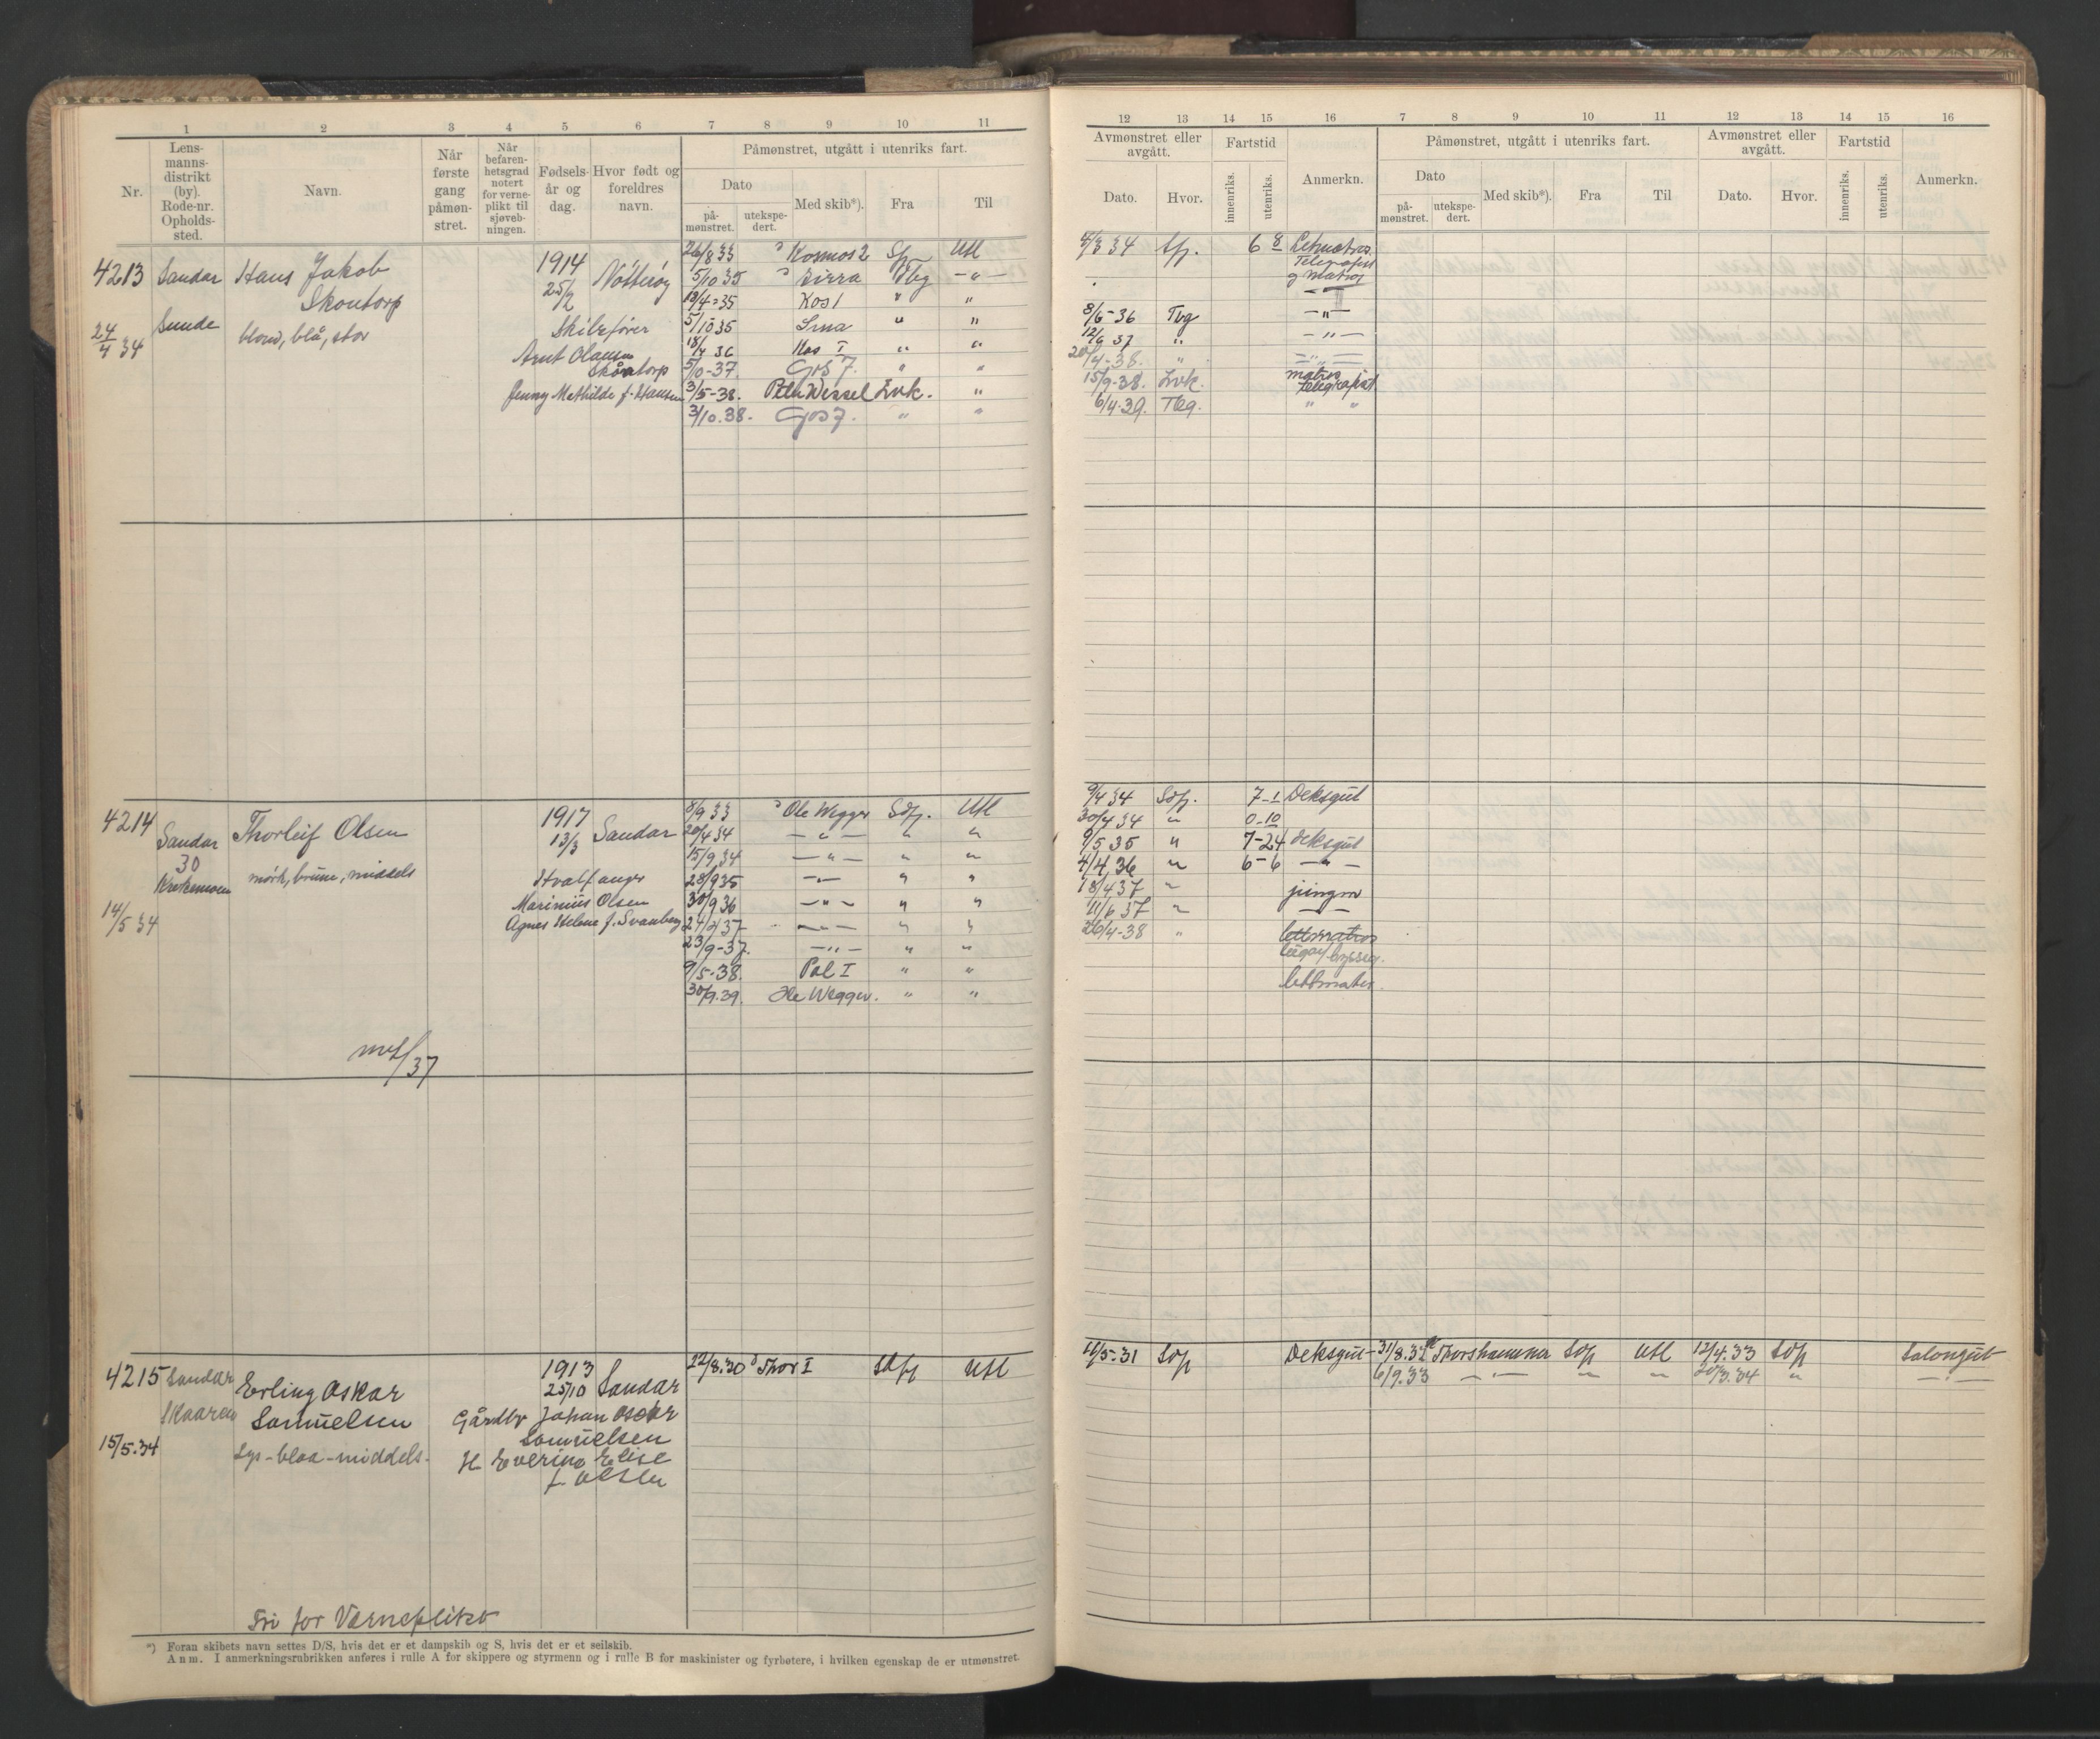 1 2 3 4 5 6 7 8 9 10 11
Nr.
Lens-
manns-
distrikt
(by).
Rode-nr.
Opholds-
sted.
Navn.
Når
første
gang
påmøn-
stret.
Når
befaren-
hetsgrad
notert
for verne-
plikt til
sjøveb-
ningen.
Fødsels-
år og
dag.
Hvor født og
foreldres
navn.
Påmønstret, utgått i utenriks fart.
Dato
på-
mønstret.
utekspe-
dert.
Med skib*).
Fra
Til
4213 Sandar Hans Jakob 1914 Nøtterøy
Skontorp 25/2
24/4 34 Sunde blond, blå, stor
Arnt Olausen
Skåntorp
Jenny Mathilde f. Hansen
26/8 33 Kosmos 2 Utl
5/10 35 Sirra Tbg -"-
18/4-35 Kos 1 " "
5/10 35 " "
18/4 36 Kos I " "
5/10-37. Gos 7. " "
3/5-38. Lvk. "
3/10.38. Gos 7. " "
4214 Sandar Thorleif Olsen 1917 Sandar
30 13/3
mørk, brune, middels Hvalfanger
14/5 34 Marinius Olsen
Agnes Helene f. Svanberg
8/9 33 Ole Wegger Sdfj. Utl
20/4 34 -"- " "
15/9 34 -"- " "
28/9 35 -"- " "
30/9 36 -"- " "
24/4 37 -"- " "
23/9-37. -"- " "
9/5-38. Pol I " "
30/9.39. Ole Wegger. " "
4215 Sandar Erling Oskar 1913 Sandar
Skaaren Samuelsen 25/10
Gårdbr Johan Oskar
Samuelsen
15/5.34 Lys-blaa-middels-
H Everine Elise
f. Olsen
22/8.30 Thor I Sdfj Utl
Fri for Værneplikt
*) Foran skibets navn settes D/S, hvis det er et dampskib og S, hvis det er et seilskib.
Anm. I anmerkningsrubrikken anføres i rulle A for skippere og styrmenn og i rulle B for maskinister og fyrbøtere, i hvilken egenskap de er utmønstret.
12 13 14 15 16 7 8 9 10 11 12 13 14 15 16
Avmønstret eller
avgått.
Fartstid
Dato.
Hvor.
innenriks.
utenriks.
Anmerkn.
Påmønstret, utgått i utenriks fart.
Dato
på-
mønstret.
utekspe-
dert.
Med skib*).
Fra
Til
Avmønstret eller
avgått.
Fartstid
Dato.
Hvor.
innenriks.
utenriks.
Anmerkn.
6 8 Letmatros
Telegrafist
og matros
8/6-36 Tbg -"-
12/6 37 " -"-
20/4-38. "
15/9-38. Lvk. matros
telegrafist
6/4-39. Tbg. " "
9/4 34 Sdfj. 7-1 Deksgut
30/4 34 " 0-10
9/5 35 " 7-24 deksgut
4/4.36 " 6-6 -"-
18/4 37 " jungm
11/6 37 "
26/4-38 " lettmatros
lettmatros
10/5.31 Sdfj Deksgut 31/8.32 Thorshammer Sdfj Utl 12/4.33 Sdfj Salongut
6/9.33 -"- " " 20/3.34 " -"-